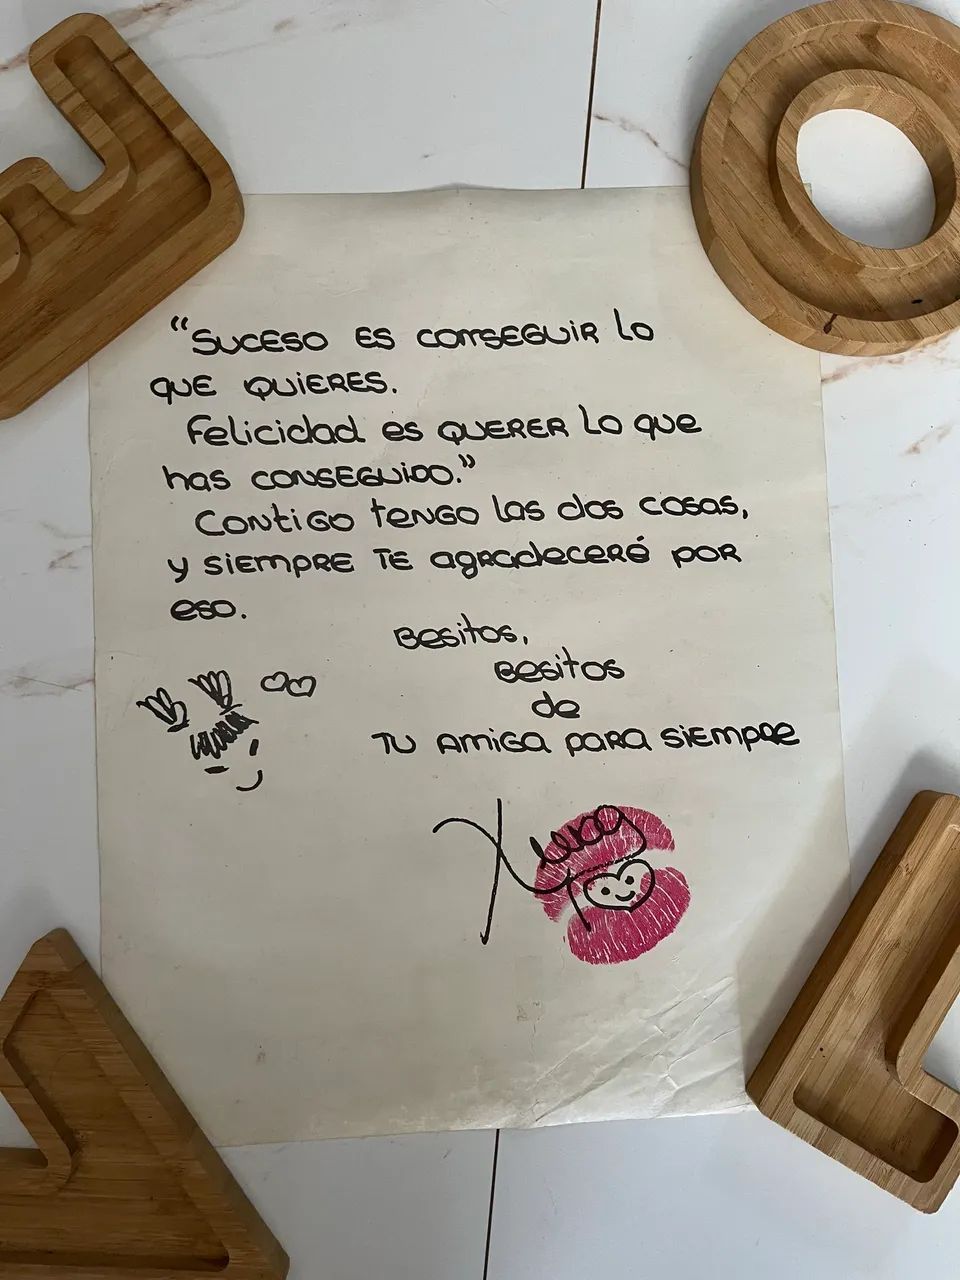 "Suceso es conseguir lo
que quieres.
Felicidad es querer lo que
has conseguido."
Contigo tengo las dos cosas,
y siempre te agradeceré por
eso.
Besitos,
Besitos
de
Tu amiga para siempre
Xuxa